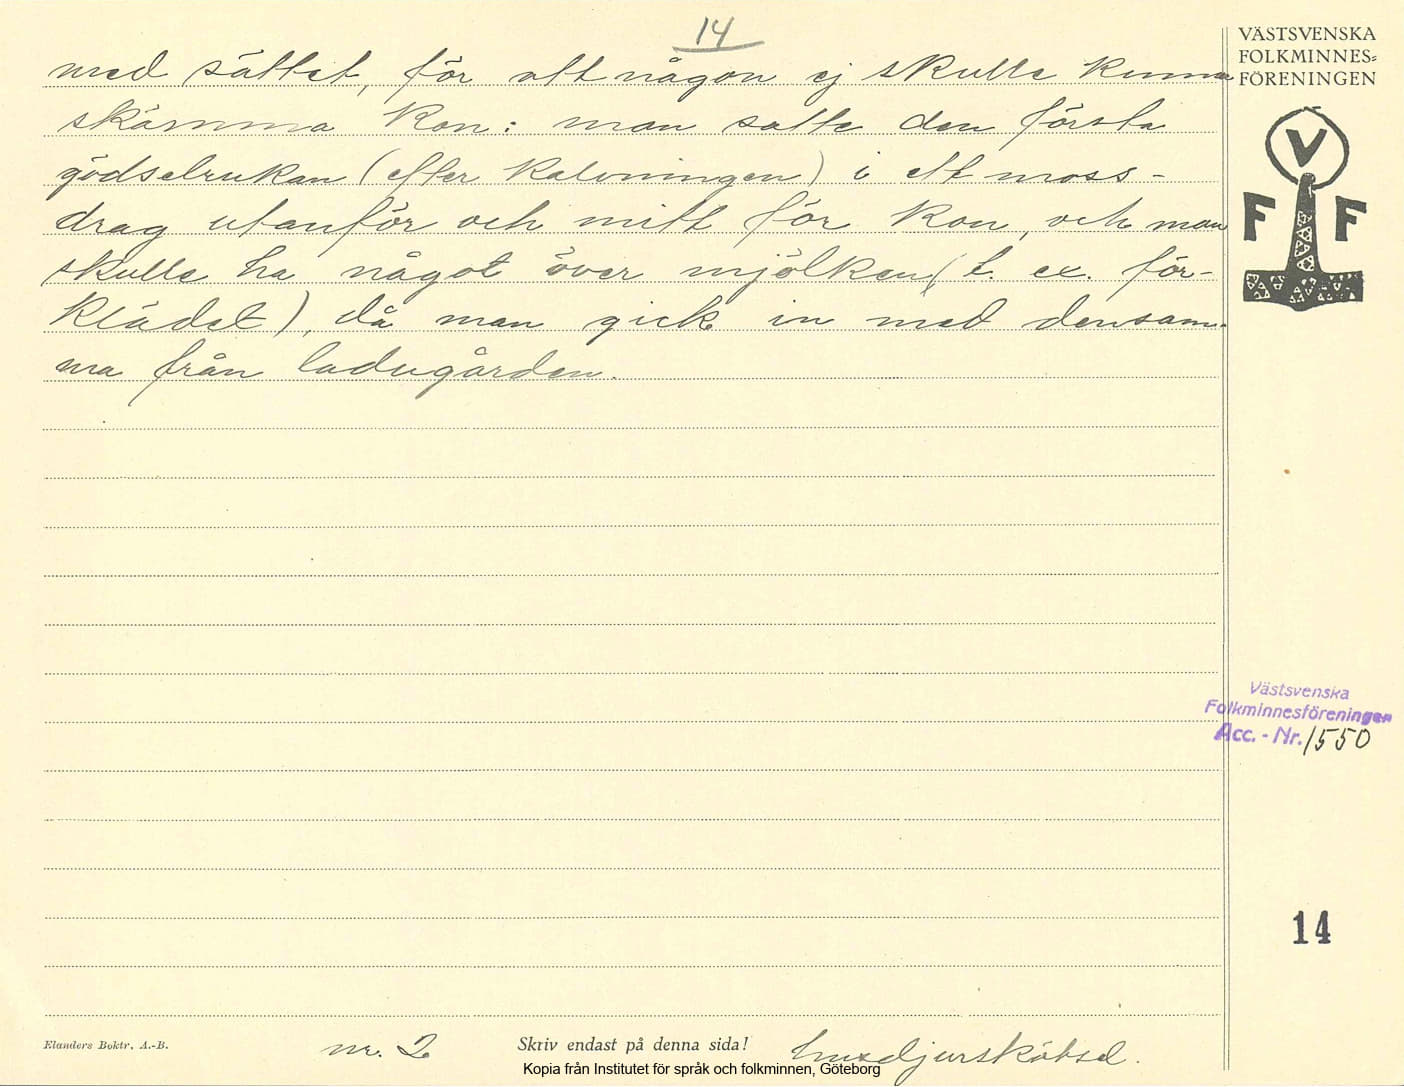 14
med sättet, för att någon ej skulle kunna
skämma kon: man satte den första
gödselrukan (efter kalvningen) i ett moss-
drag utanför och mitt för kon, och man
skulle ha något över mjölken (t. ex. för-
klädet), då man gick in med densam-
ma från ladugården.
VÄSTSVENSKA
FOLKMINNES-
FÖRENINGEN
V
F F
Västsvenska
Folkminnesföreningen
Acc. - Nr. 1550
14
Elanders Boktr. A.-B.
nr. 2
Skriv endast på denna sida!
husdjursskötsel.
Kopia från Institutet för språk och folkminnen, Göteborg